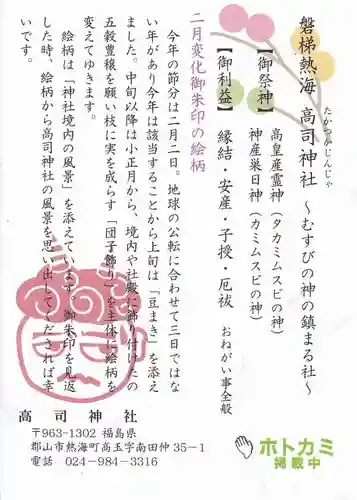 磐梯熱海 高司神社 ～むすびの神の鎮まる社～
たかつかじんじゃ
【御祭神】 高皇産霊神(タカミムスビの神)
神産巣日神(カミムスビの神)
【御利益】 縁結・安産・子授・厄祓 おねがい事全般
二月変化御朱印の絵柄
今年の節分は二月二日。地球の公転に合わせて三日ではな
い年があり今年は該当することから上旬は「豆まき」を添え
ました。中旬以降は小正月から、境内や社殿に飾り付けたの
五穀豊穣を願い枝に実を成らす「団子飾り」を主体に絵柄を
変えてゆきます。
絵柄は「神社境内の風景」を添えています。御朱印を見返
した時、絵柄から高司神社の風景を思い出してくだされば幸
いです。
高司神社
〒963-1302 福島県
郡山市熱海町高玉字南田仲35−1
電話 024-984-3316
ホトカミ
掲載中